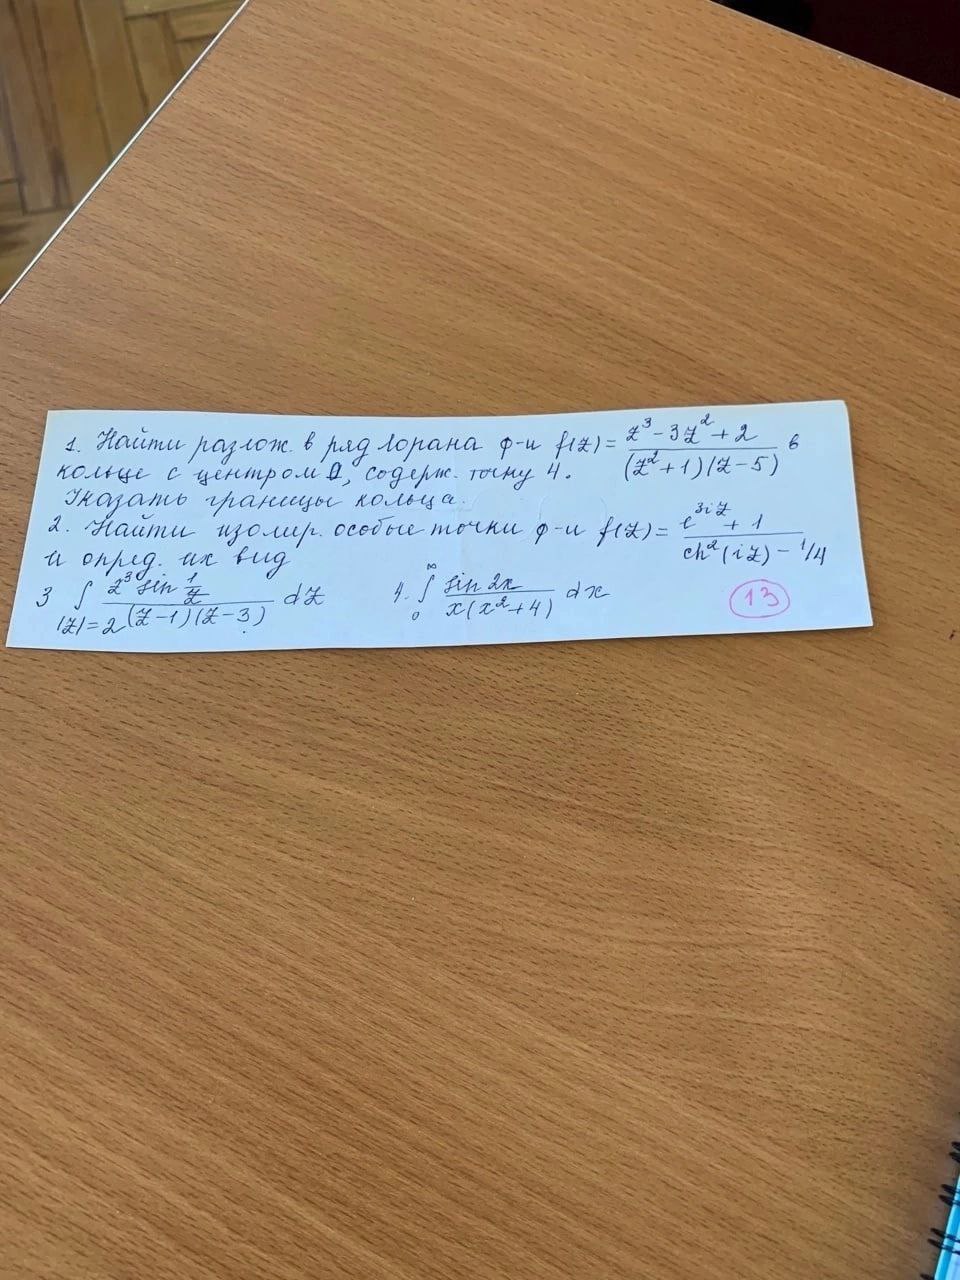 1. Найти разлож. в ряд Лорана ф-и f(z) = (z³ - 3z² + 2) / ((z² + 1)(z - 5)) в
кольце с центром 0, содерж. точку 4.
Указать границы кольца.
2. Найти изолир. особые точки ф-и f(z) = (e^{3iz} + 1) / (ch²(iz) - 1/4)
и опред. их вид
3 ∫_{|z|=2} (z³ sin 1/z) / ((z-1)(z-3)) dz 4. ∫_0^∞ (sin 2x) / (x(x²+4)) dx
13